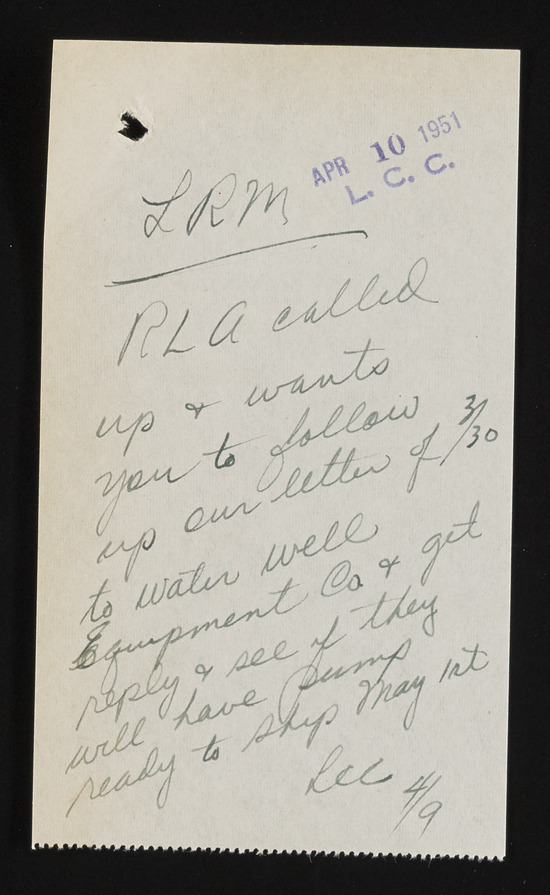 APR 10 1951
L. C. C.
LRM
RLA called
up & wants
you to follow
up our letter of 3/30
to water well
Equipment Co & get
reply & see if they
will have pump
ready to ship May 1st
LCC 4/9